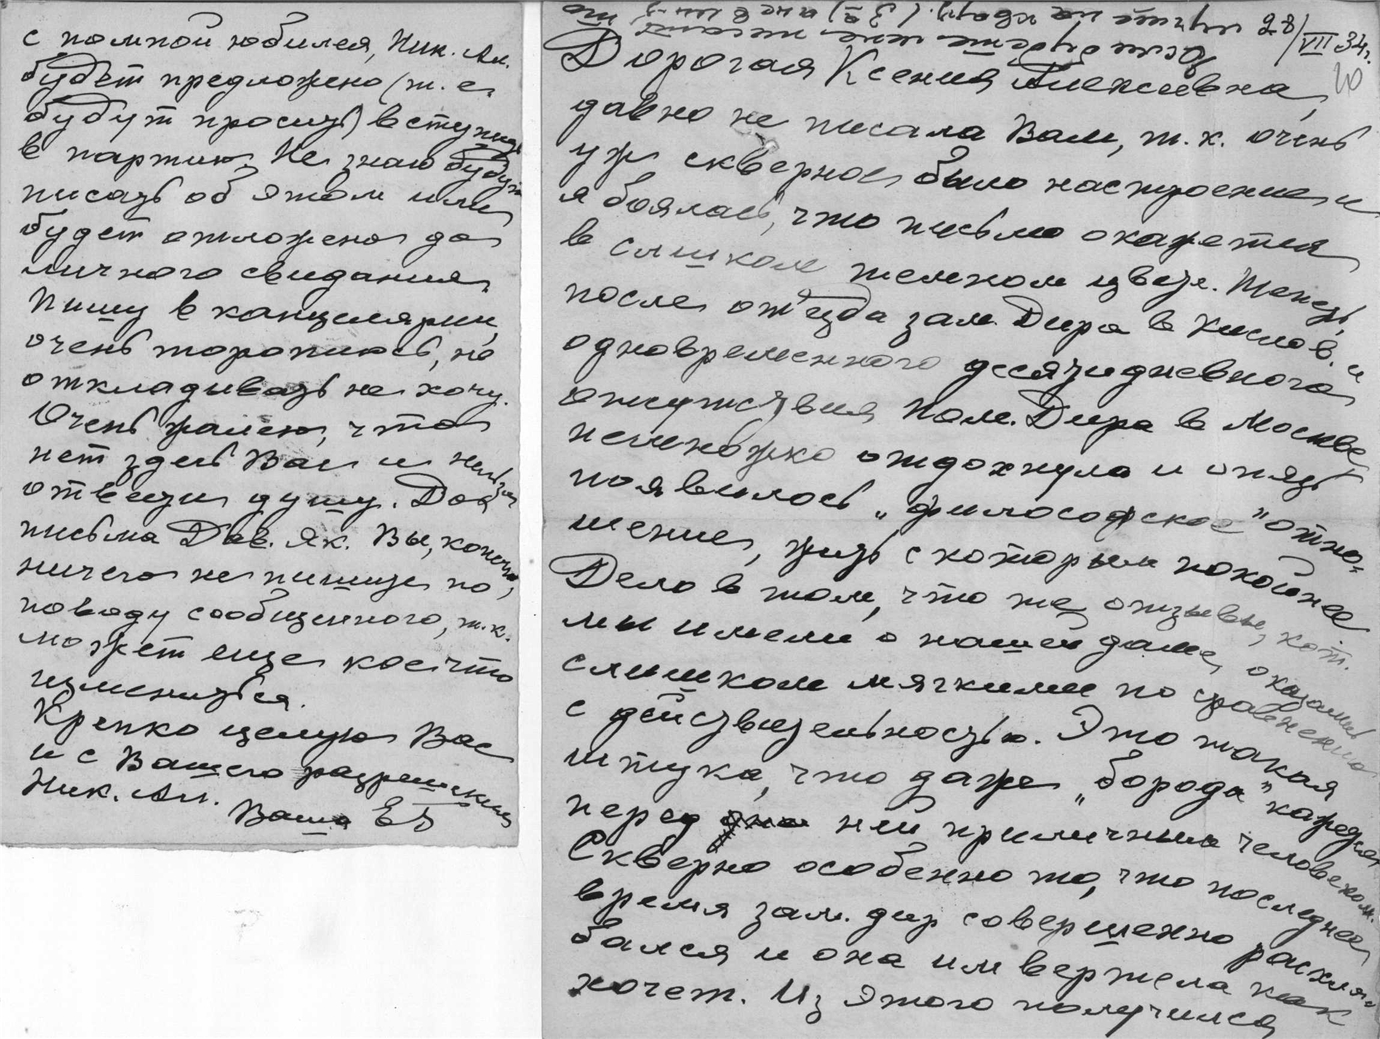 28/VII 34 г.
20
Дорогая Ксения Алексеевна,
давно не писала Вам, т.к. очень
уж скверное было настроение и
я боялась, что письмо окажется
в слишком темном цвете. Теперь,
после отъезда зам. Дира в Кислов. и
одновременного десятидневного
отсутствия пом. Дира в Москве,
немножко отдохнула и опять
появилось „философское" отно-
шение, жить с которым покойнее
Дело в том, что те отзывы, кот.
мы имели о нашей даме, оказались
слишком мягкими по сравнению
с действительностью. Это такая
штука, что даже „борода" кажется
перед ней приличным человеком.
Скверно особенно то, что последнее
время зам. дир совершенно расхля-
бался и она им вертела как
хочет. Из этого получился
с помпой юбилея, Ник. Ал.
будет предложено (т.е.
будут просить) вступить
в партию. Не знаю будут
писать об этом или
будет отложено до
личного свидания.
Пишу в канцелярии,
очень тороплюсь, но
откладывать не хочу.
Очень жалею, что
нет здесь Вас и нельзя
отвести душу. Для
письма Дав. Як. Вы, конечно,
ничего не пишите по
поводу сообщенного, т.к.
может еще кое что
измениться.
Крепко целую Вас
и с Вашего разрешения
Ник. Ал.
Ваша ЕБ